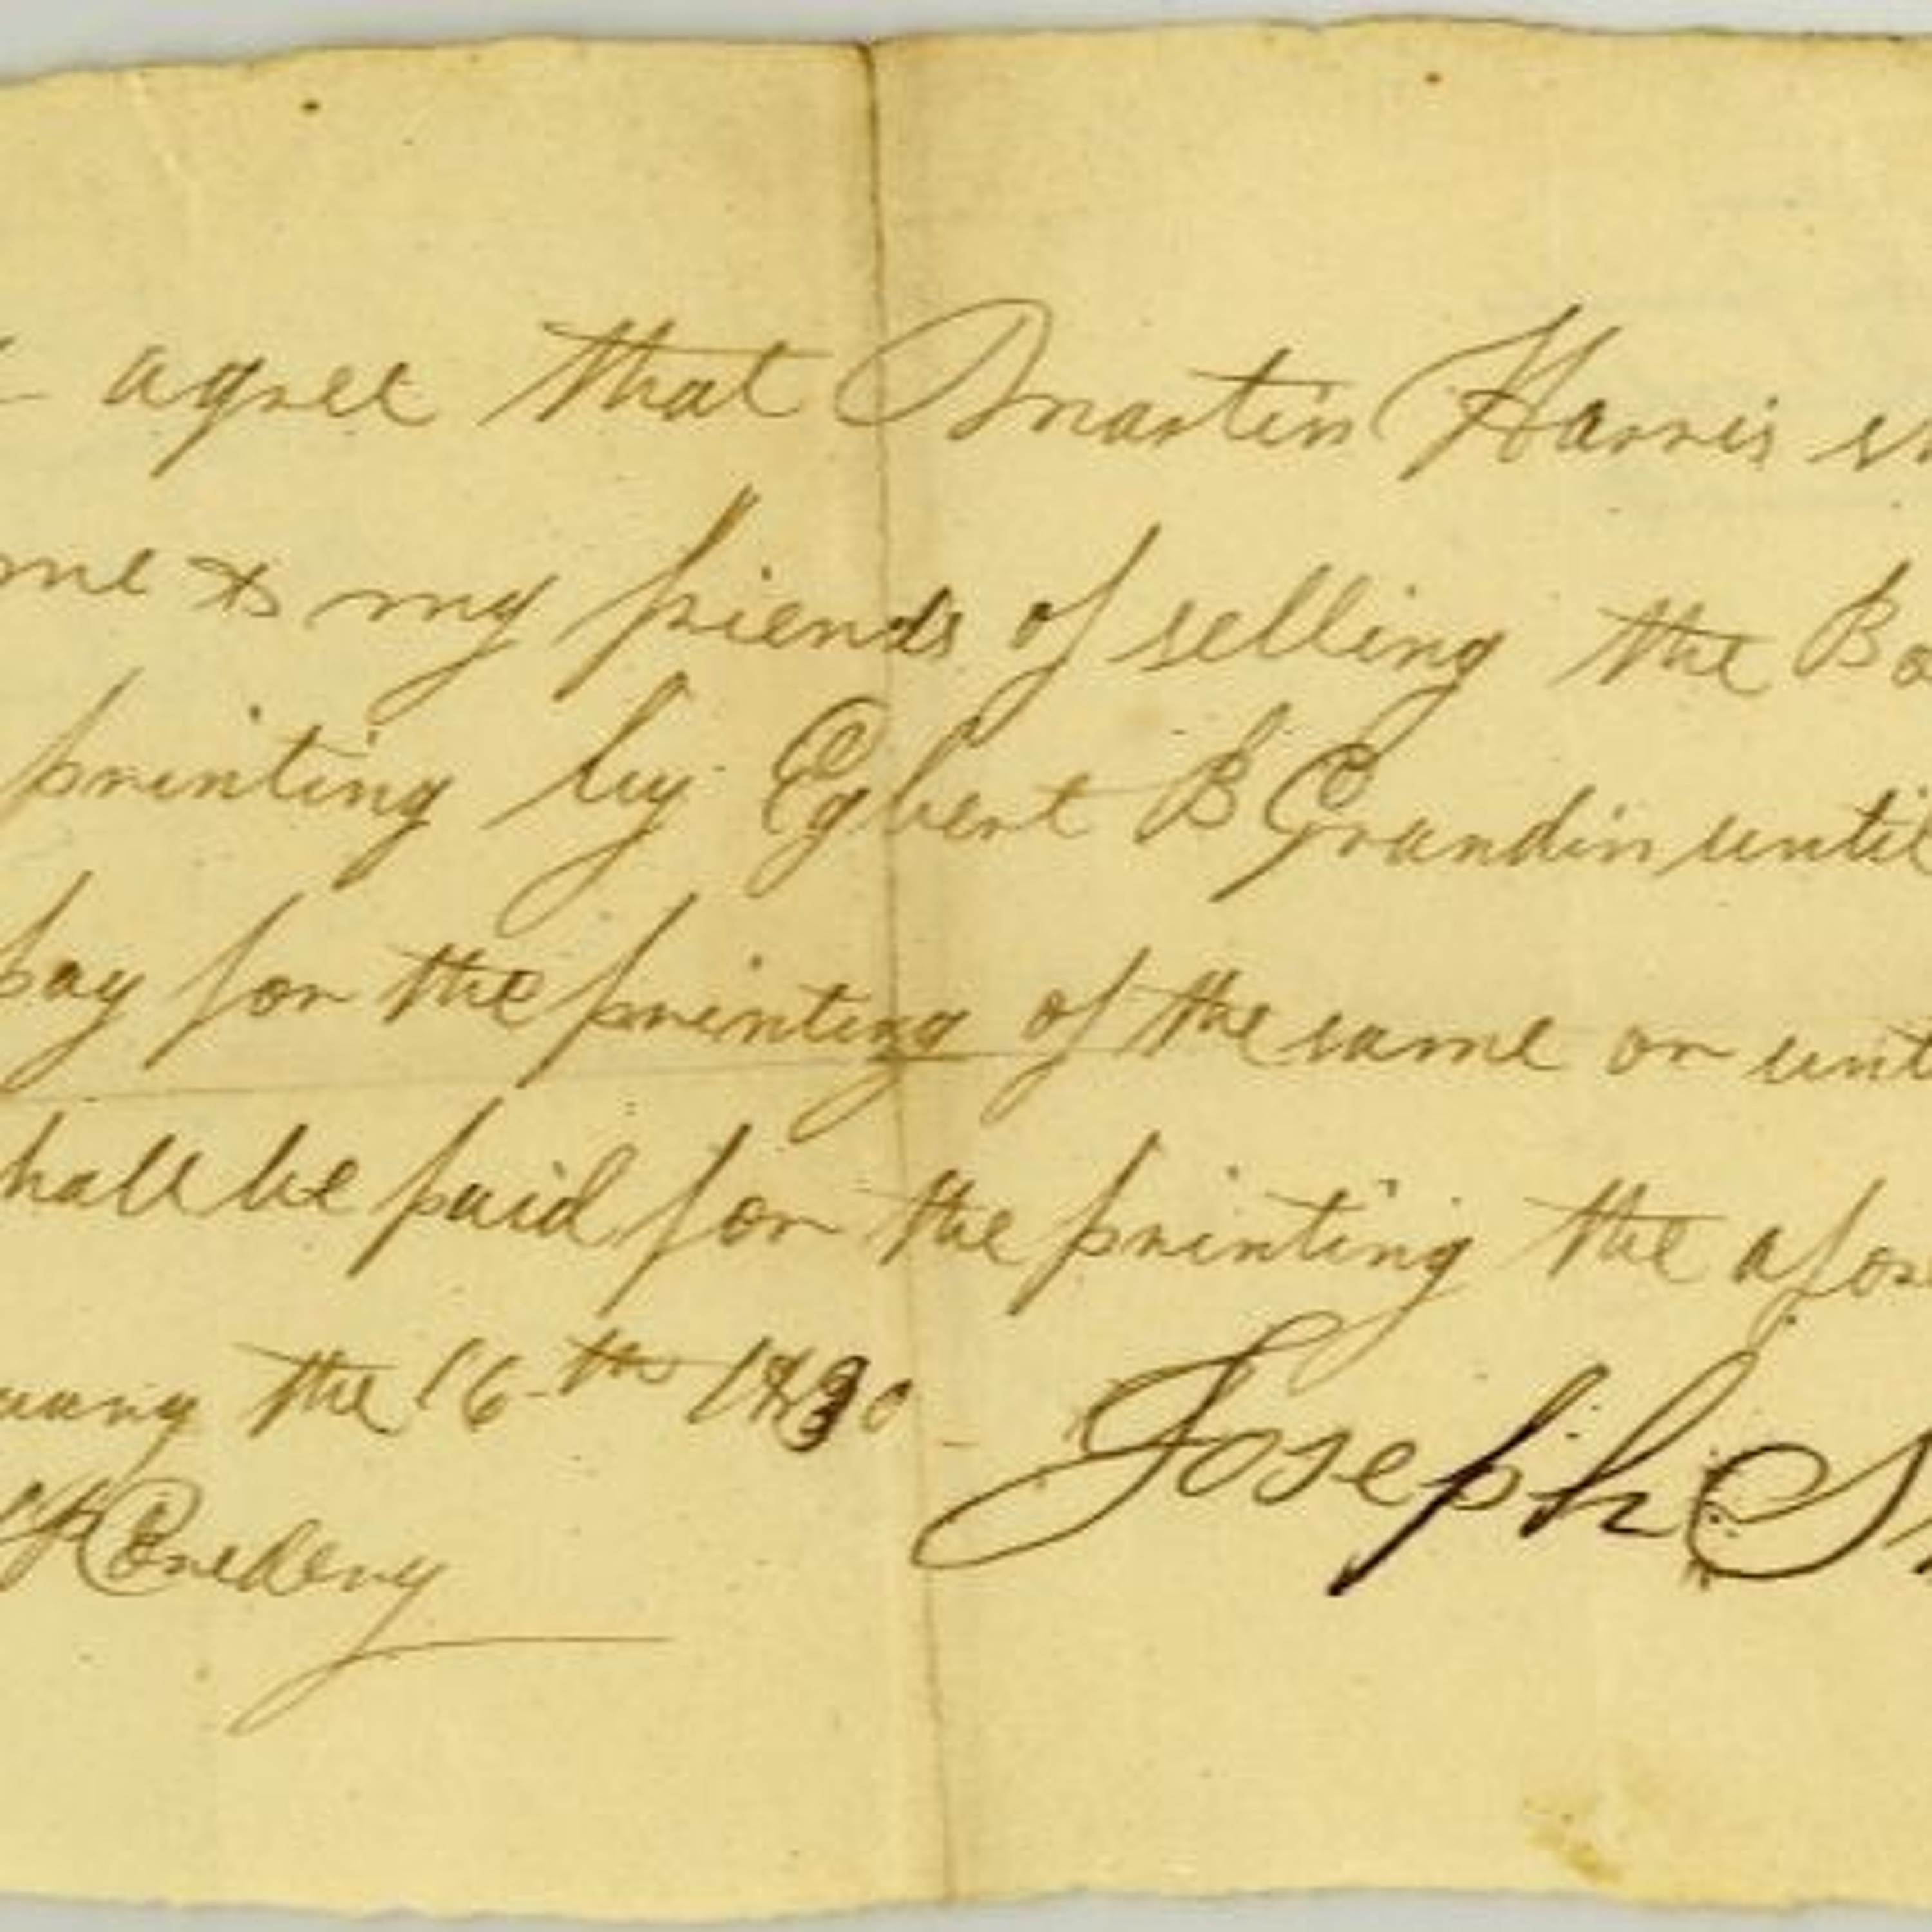 agree that Martin Harris
me & my friends of selling the
printing by Egbert B Grandin until
pay for the printing of the same or
shall be paid for the printing the
the 16th 1830 - Joseph